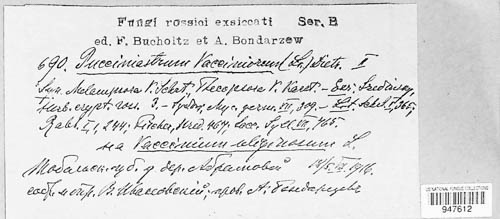 Fungi rossici exsiccati Ser. B
ed. F. Bucholtz et A. Bondarzew
690. Pucciniastrum Vacciniorum (Lk.) Dietr. I
Syn. Melampsora V. Schrt. Thecopsora V. Karst. – Exs:
crypt. ross. 3. – Sydow, Myc. germ. VII, 309. –
Rabh. I, 1, 244: Fischer, Ured. 467; Sacc. Syll. VII, 765.
на Vaccinium uliginosum L.
Тобольск. губ. у дер. Абрамовой 1916.
собр. и опр. В. Ивановский; пров. А. Бондарцев
US NATIONAL FUNGUS COLLECTIONS
947612